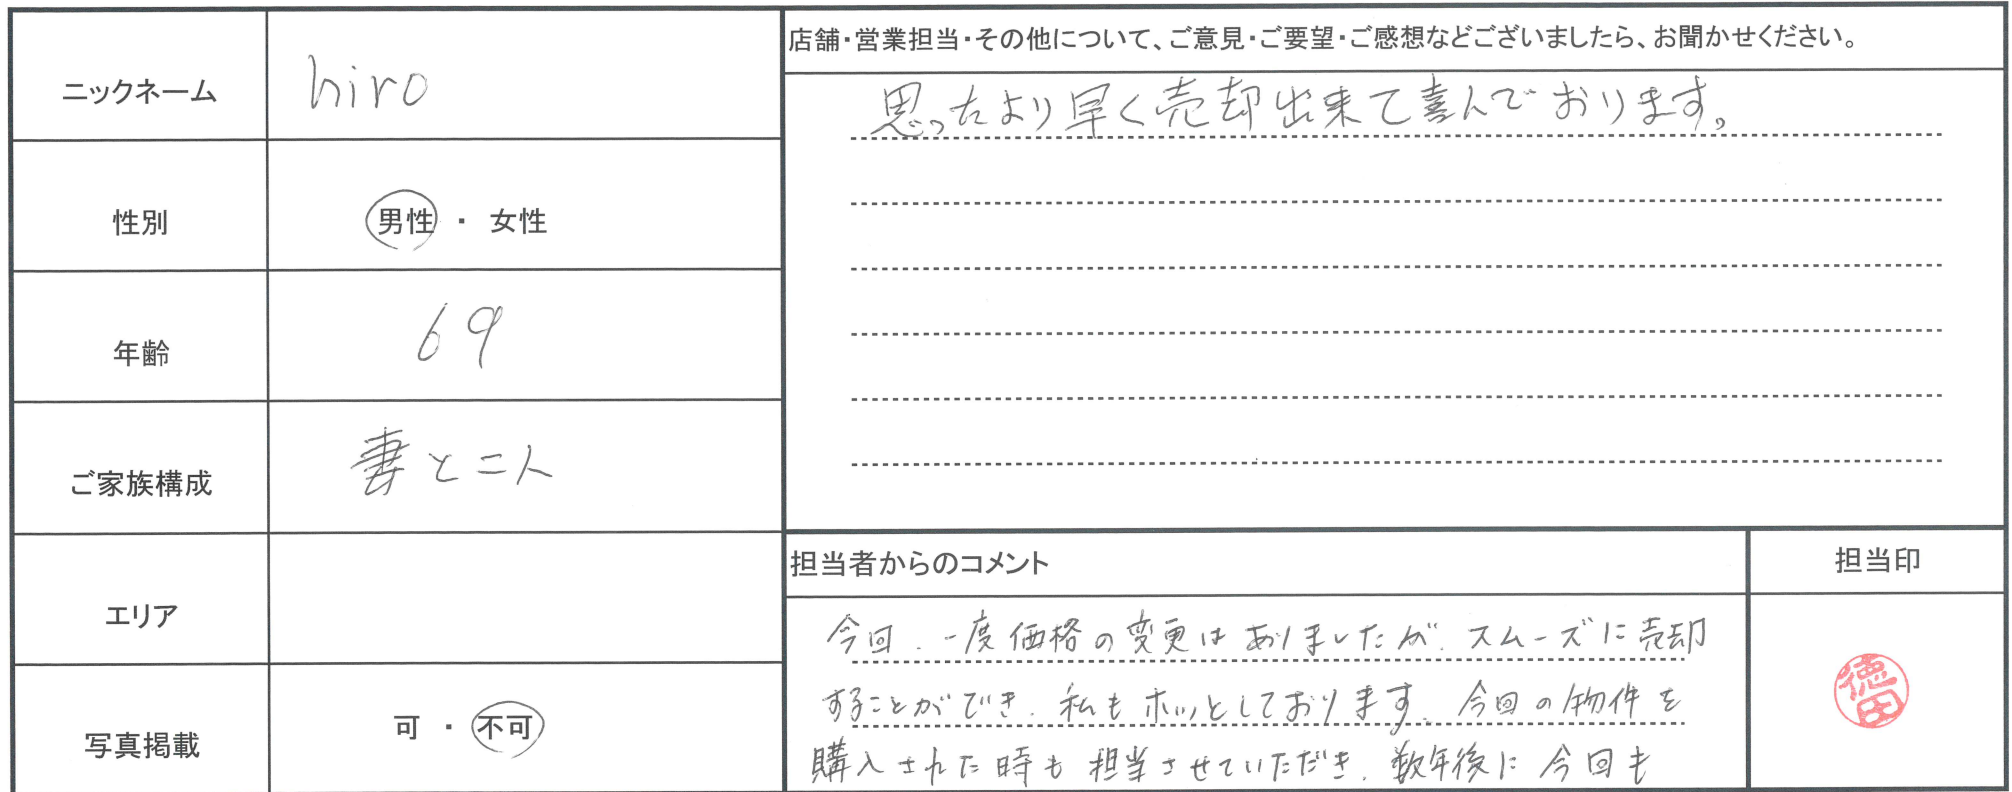 ニックネーム hiro
性別 男性 ・ 女性
年齢 69
ご家族構成 妻と二人
エリア
写真掲載 可 ・ 不可
店舗・営業担当・その他について、ご意見・ご要望・ご感想などございましたら、お聞かせください。
思ったより早く売却出来て喜んでおります。
担当者からのコメント
今回、一度価格の変更はありましたが、スムーズに売却
することができ、私もホッとしております。今回の物件を
購入された時も担当させていただき、数年後に今回も
担当印
徳田